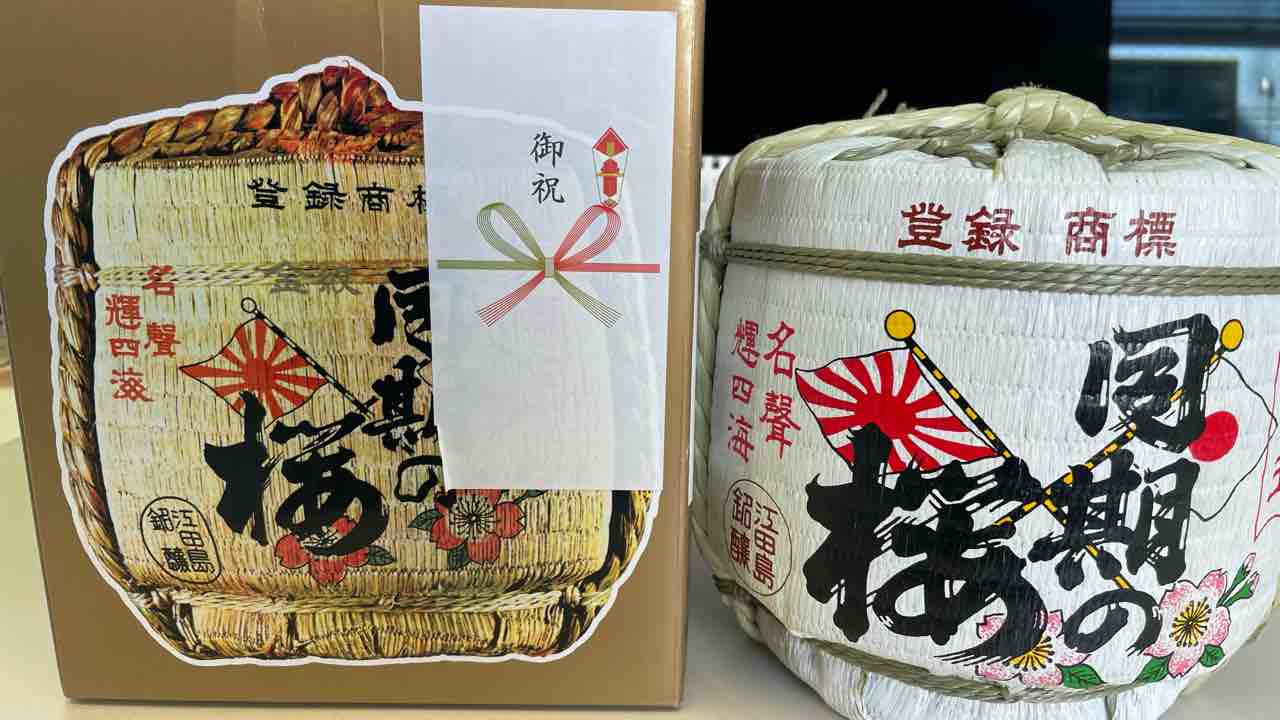 登録商標
金紋
名聲
輝四海
同期の
桜
江田島
銘醸
御祝
登録商標
名聲
輝四海
同期の
桜
江田島
銘醸